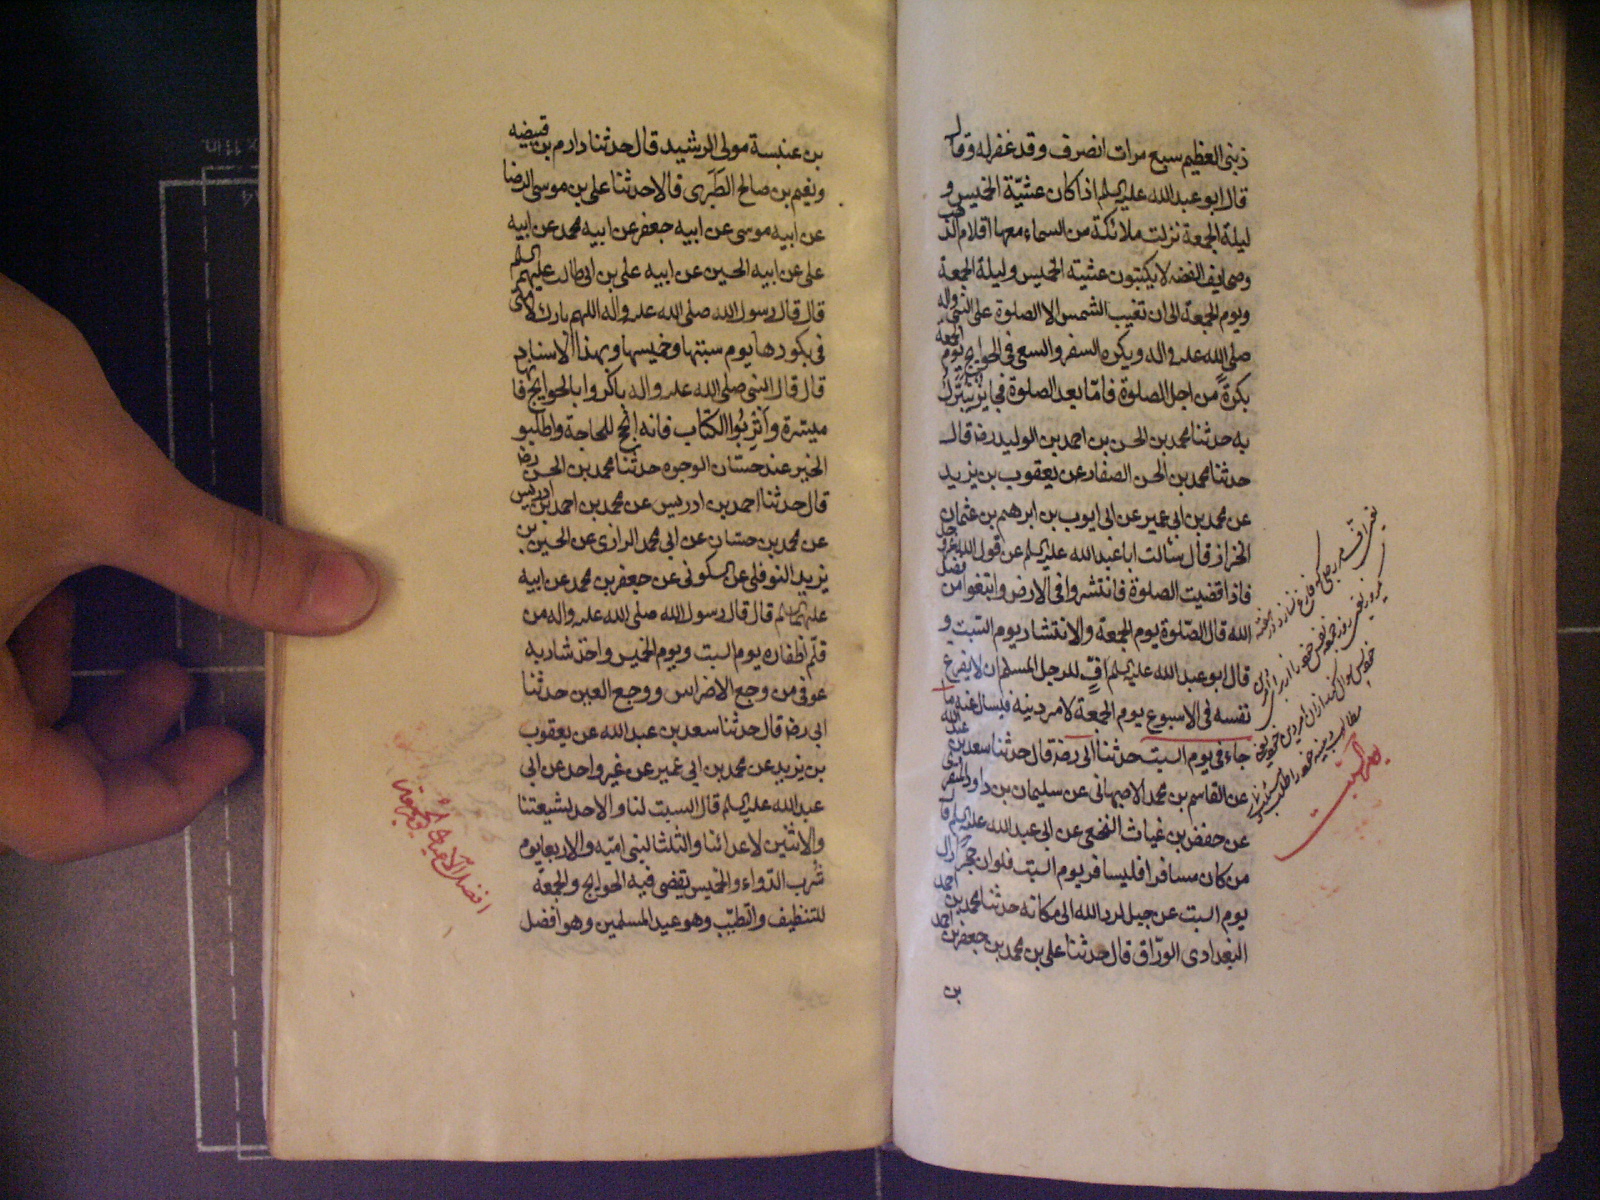 ذنبى العظيم سبع مرات انصرف وقد غفر له وقال
قال ابو عبد الله عليه السلم اذا كان عشيّة الخميس و
ليلة الجمعة نزلت ملائكة من السماء معها اقلام الذهب
وصحايف الفضه لا يكتبون عشيته الخميس وليلة الجمعة
ويوم الجمعة الى ان تغيب الشمس الا الصلوة على النبى واله
صلى الله عليه واله ويكره السفر والسعى فى الحوايج يوم الجمعة
بكرةً من اجل الصلوة فامّا بعد الصلوة فجايز يتبرّك
به حدثنا محمد بن الحسن بن احمد بن الوليد رضه قال
حدثنا محمد بن الحسن الصفار عن يعقوب بن يزيد
عن محمد بن ابى عمير عن ابى ايوب بن ابرهيم بن عثمان
الخزاز قال سألت ابا عبد الله عليه السلم عن قول الله عز وجل
فاذا قضيت الصلوة فانتشروا فى الارض وابتغوا من فضل
الله قال الصّلوة يوم الجمعة والانتشار يوم السبت و
قال ابو عبد الله عليه السلم افٍّ للرجل المسلم ان لا يفرغ
نفسه فى الاسبوع يوم الجمعة لامر دينه فيسال عنه ما
جاء فى يوم السبت حدثنا ابى رضه قال حدثنا سعد بن عبد الله
عن القاسم بن محمد الاصبهانى عن سليمان بن داود المنقرى
عن حفص بن غياث النخعى عن ابى عبد الله عليه السلم قال
من كان مسافرا فليسافر يوم السبت فلو ان حجرًا زال
يوم السبت عن جبل لرد الله الى مكانه حدثنا محمد بن احمد
البغدادى الورّاق قال حدثنا على بن محمد بن جعفر بن احمد
بن
يوم السبت
بن عنبسة مولى الرشيد قال حدثنا دارم بن قبيصه
ونعيم بن صالح الطَبَرى قالا حدثنا على بن موسى الرضا
عن ابيه موسى عن ابيه جعفر عن ابيه محمد عن ابيه
على عن ابيه الحسين عن ابيه على بن ابى طالب عليهم السلم
قال قال رسول الله صلى الله عليه واله اللهم بارك لامتى
فى بكورها يوم سبتها وخميسها وبهذا الاسناد
قال قال النبى صلى الله عليه واله باكروا بالحوايج فانها
ميسّرة وأتربُوا الكتاب فانه انجح للحاجة واطلبو
الخير عند حسّان الوجوه حدثنا محمد بن الحسن رضه
قال حدثنا احمد بن ادريس عن محمد بن احمد بن ادريس
عن محمد بن حسّان عن ابى محمد الرازى عن الحسين بن
يزيد النوفلى عن السكونى عن جعفر بن محمد عن ابيه
عليهما السلم قال قال رسول الله صلى الله عليه واله من
قلّم اظفاره يوم السبت ويوم الخميس واخذ شاربه
عوفى من وجع الاضراس ووجع العين حدثنا
ابى رضه قال حدثنا سعد بن عبد الله عن يعقوب
بن يزيد عن محمد بن ابى عمير عن غير واحد عن ابى
عبد الله عليه السلم قال السبت لنا والاحد لشيعتنا
والاثنين لاعدائنا والثلثا لبنى اميّه والاربعا يوم
شُرب الدّواء والخميس يقضى فيه الحوايج والجمعة
للتنظيف والتطيّب وهو عيد المسلمين وهو افضل
افضل الاعياد